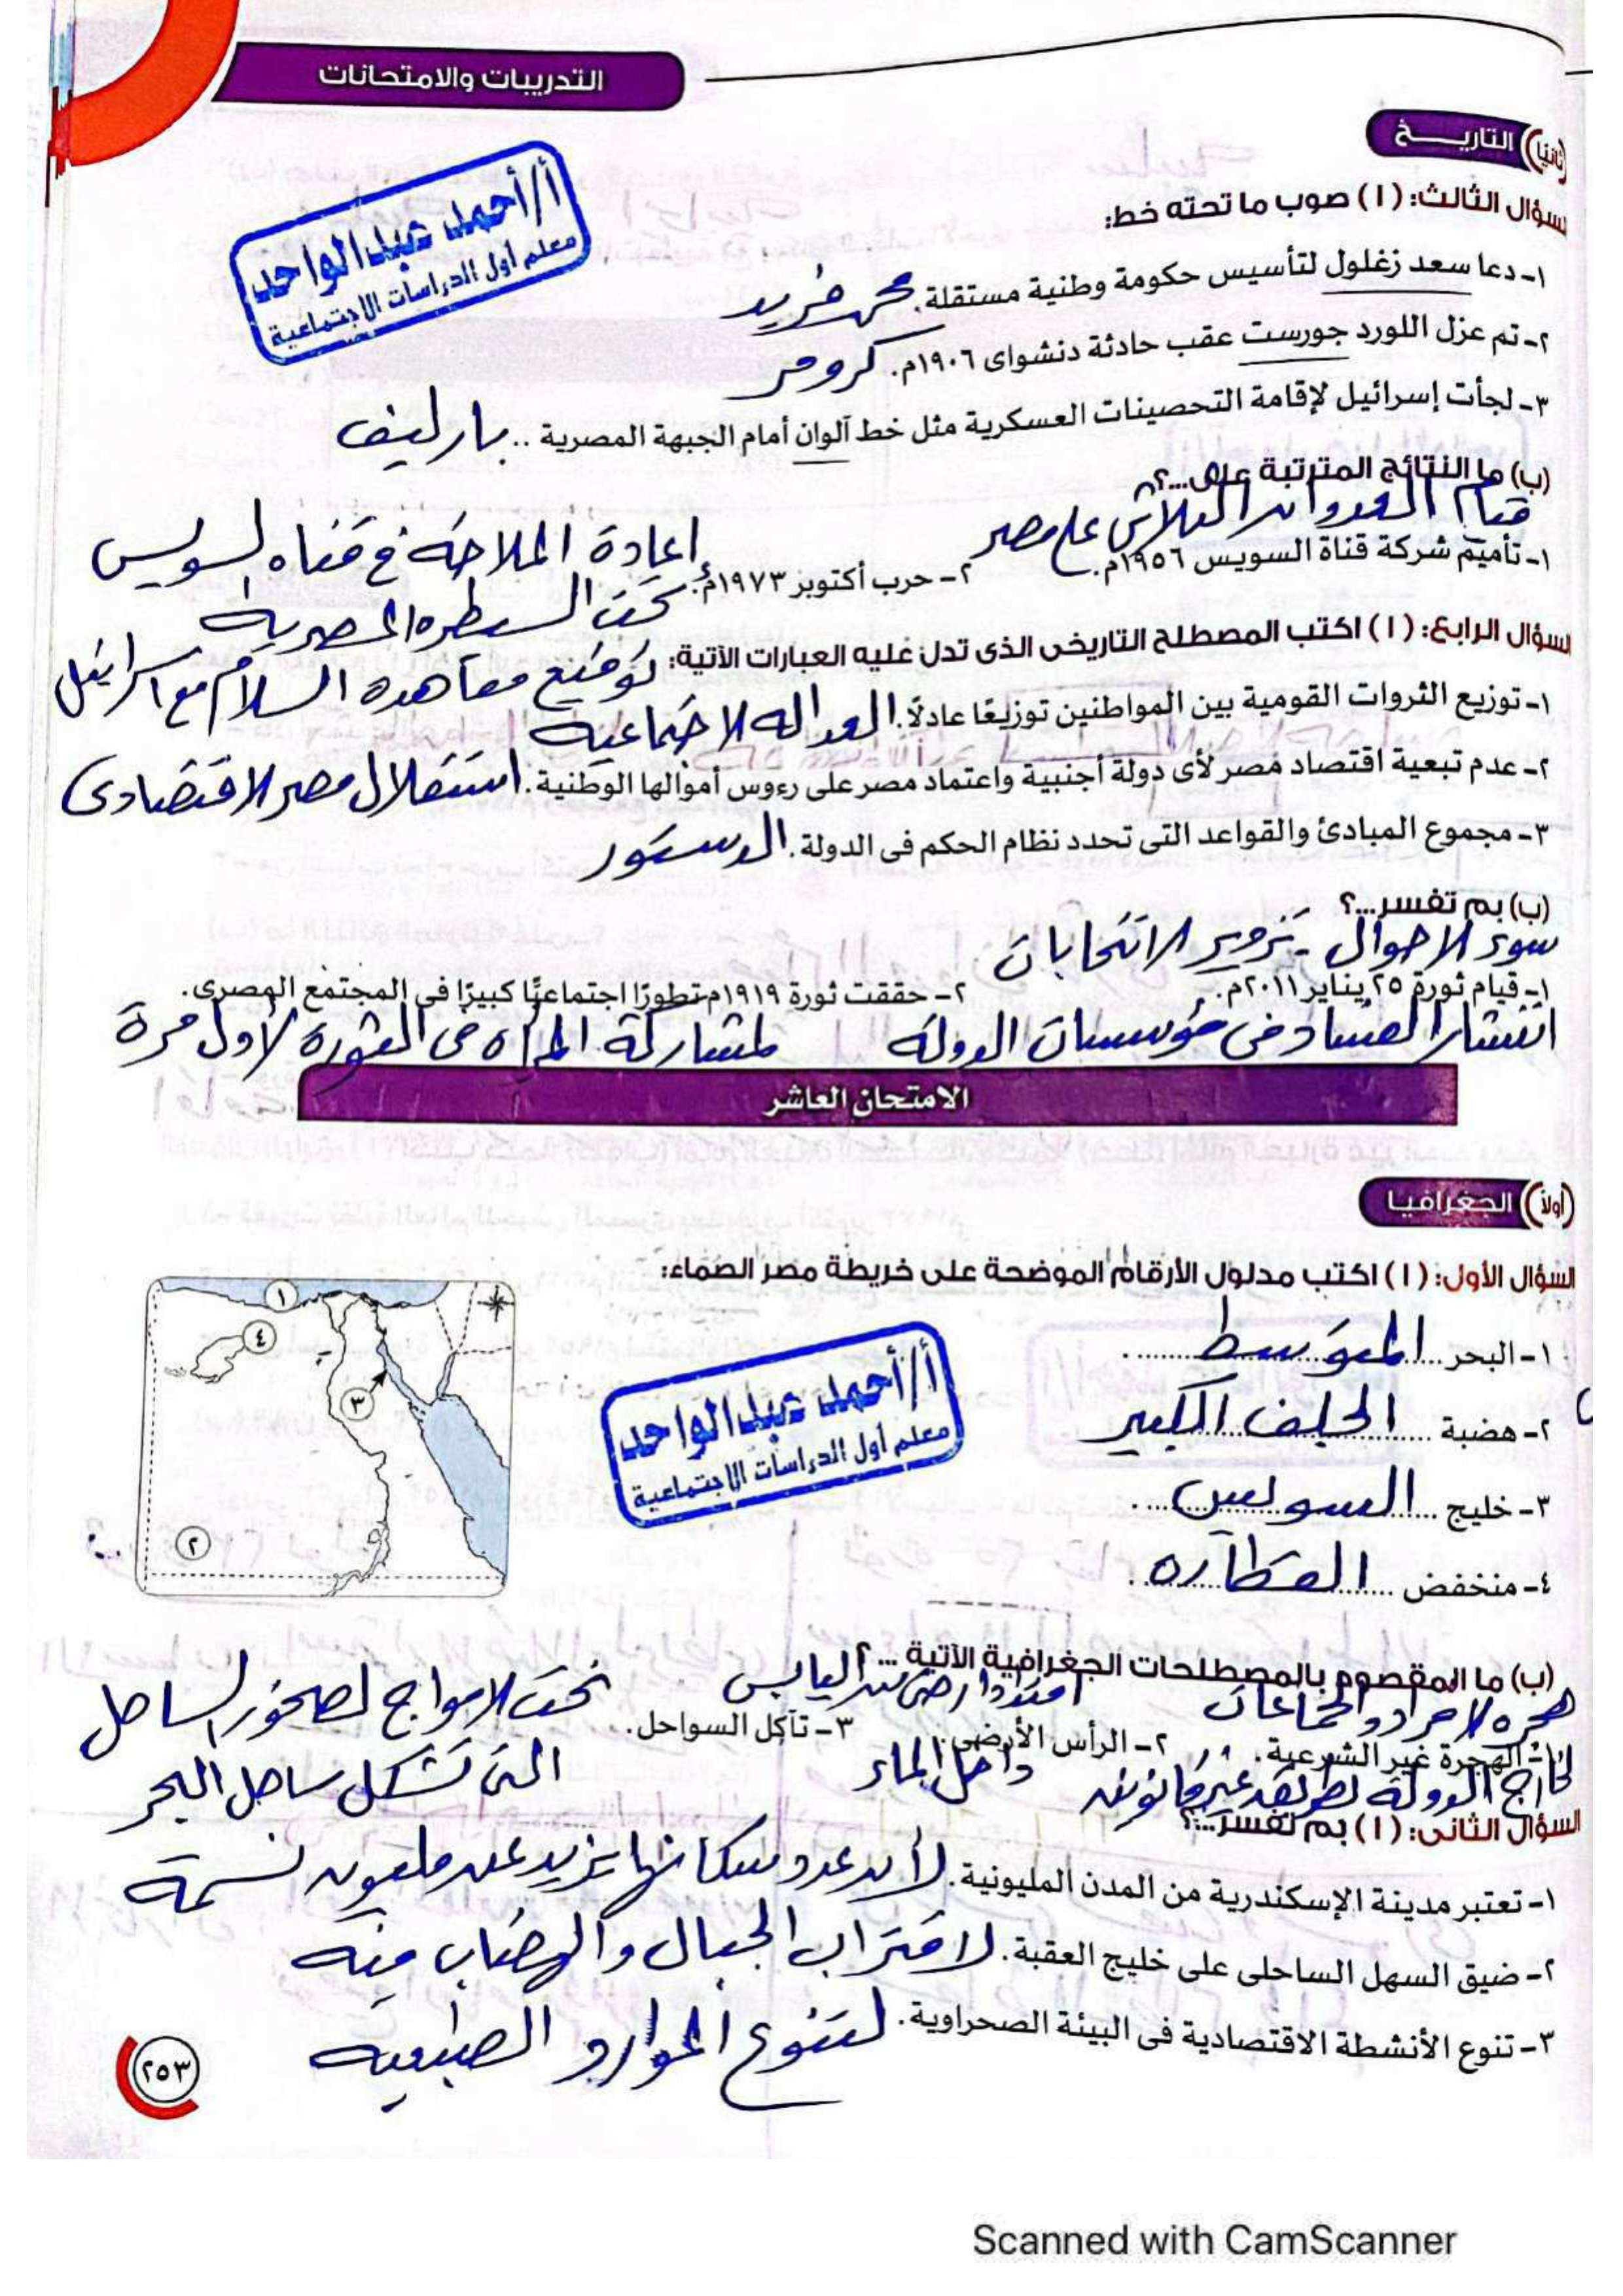 التدريبات والامتحانات
ثانيًا التاريخ
أ/أحمد عبدالواحد
معلم أول الدراسات الاجتماعية
السؤال الثالث: (أ) صوب ما تحته خط:
١- دعا سعد زغلول لتأسيس حكومة وطنية مستقلة. محمد فريد
٢- تم عزل اللورد جورست عقب حادثة دنشواى ١٩٠٦م. كرومر
٣- لجأت إسرائيل لإقامة التحصينات العسكرية مثل خط آلون أمام الجبهة المصرية .. بارليف
(ب) ما النتائج المترتبة على...؟
قيام العدوان الثلاثى على مصر
١- تأميم شركة قناة السويس ١٩٥٦م.
٢- حرب أكتوبر ١٩٧٣م. إعادة الملاحة فى قناه السويس
تحت السيطره المصرية
توقيع معاهده السلام مع اسرائيل
السؤال الرابع: (أ) اكتب المصطلح التاريخى الذى تدل عليه العبارات الآتية:
١- توزيع الثروات القومية بين المواطنين توزيعًا عادلًا. العداله الاجتماعية
٢- عدم تبعية اقتصاد مصر لأى دولة أجنبية واعتماد مصر على رءوس أموالها الوطنية. استقلال مصر الاقتصادى
٣- مجموع المبادئ والقواعد التى تحدد نظام الحكم فى الدولة. الدستور
(ب) بم تفسر...؟
سوء الاحوال - تزوير الانتخابات
١- قيام ثورة ٢٥ يناير ٢٠١١م.
٢- حققت ثورة ١٩١٩م تطورًا اجتماعيًا كبيرًا فى المجتمع المصرى.
انتشار الفساد فى مؤسسات الدولة
لمشاركة المرأه فى الثورة لأول مرة
الامتحان العاشر
أولًا الجغرافيا
السؤال الأول: (أ) اكتب مدلول الأرقام الموضحة على خريطة مصر الصماء:
١
٤
٣
٢
أ/أحمد عبدالواحد
معلم أول الدراسات الاجتماعية
١- البحر المتوسط
٢- هضبة الجلف الكبير
٣- خليج السويس
٤- منخفض القطاره
(ب) ما المقصوم بالمصطلحات الجغرافية الآتية ...؟
هجره الافراد والجماعات
امتداد ارضى من اليابس
نحت الامواج لصخور الساحل
١- الهجرة غير الشرعية.
٢- الرأس الأرضى.
٣- تآكل السواحل.
خارج الدولة بطريقه غير قانونيه
داخل الماء
التى تشكل ساحل البحر
السؤال الثانى: (أ) بم تفسر...؟
١- تعتبر مدينة الإسكندرية من المدن المليونية. لأن عدد سكانها يزيد عن مليون نسمة
٢- ضيق السهل الساحلى على خليج العقبة. لاقتراب الجبال والهضاب منه
٣- تنوع الأنشطة الاقتصادية فى البيئة الصحراوية. لتنوع الموارد الطبيعيه
٢٥٣
Scanned with CamScanner